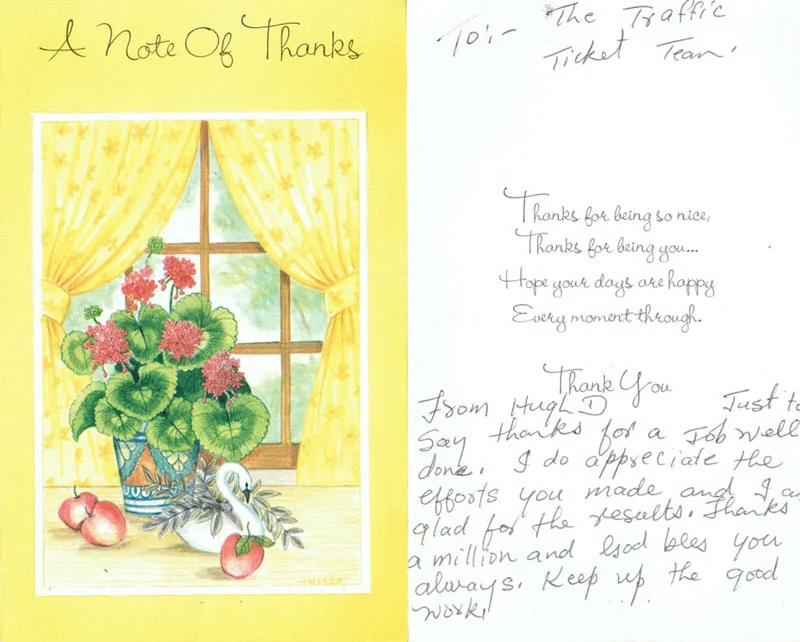 A Note Of Thanks
To:- The Traffic
Ticket Team.
Thanks for being so nice,
Thanks for being you...
Hope your days are happy
Every moment through.
Thank You
From Hugh D Just to
Say thanks for a Job well
done. I do appreciate the
efforts you made and I am
glad for the results. Thanks
a million and God bles you
always. Keep up the good
work.